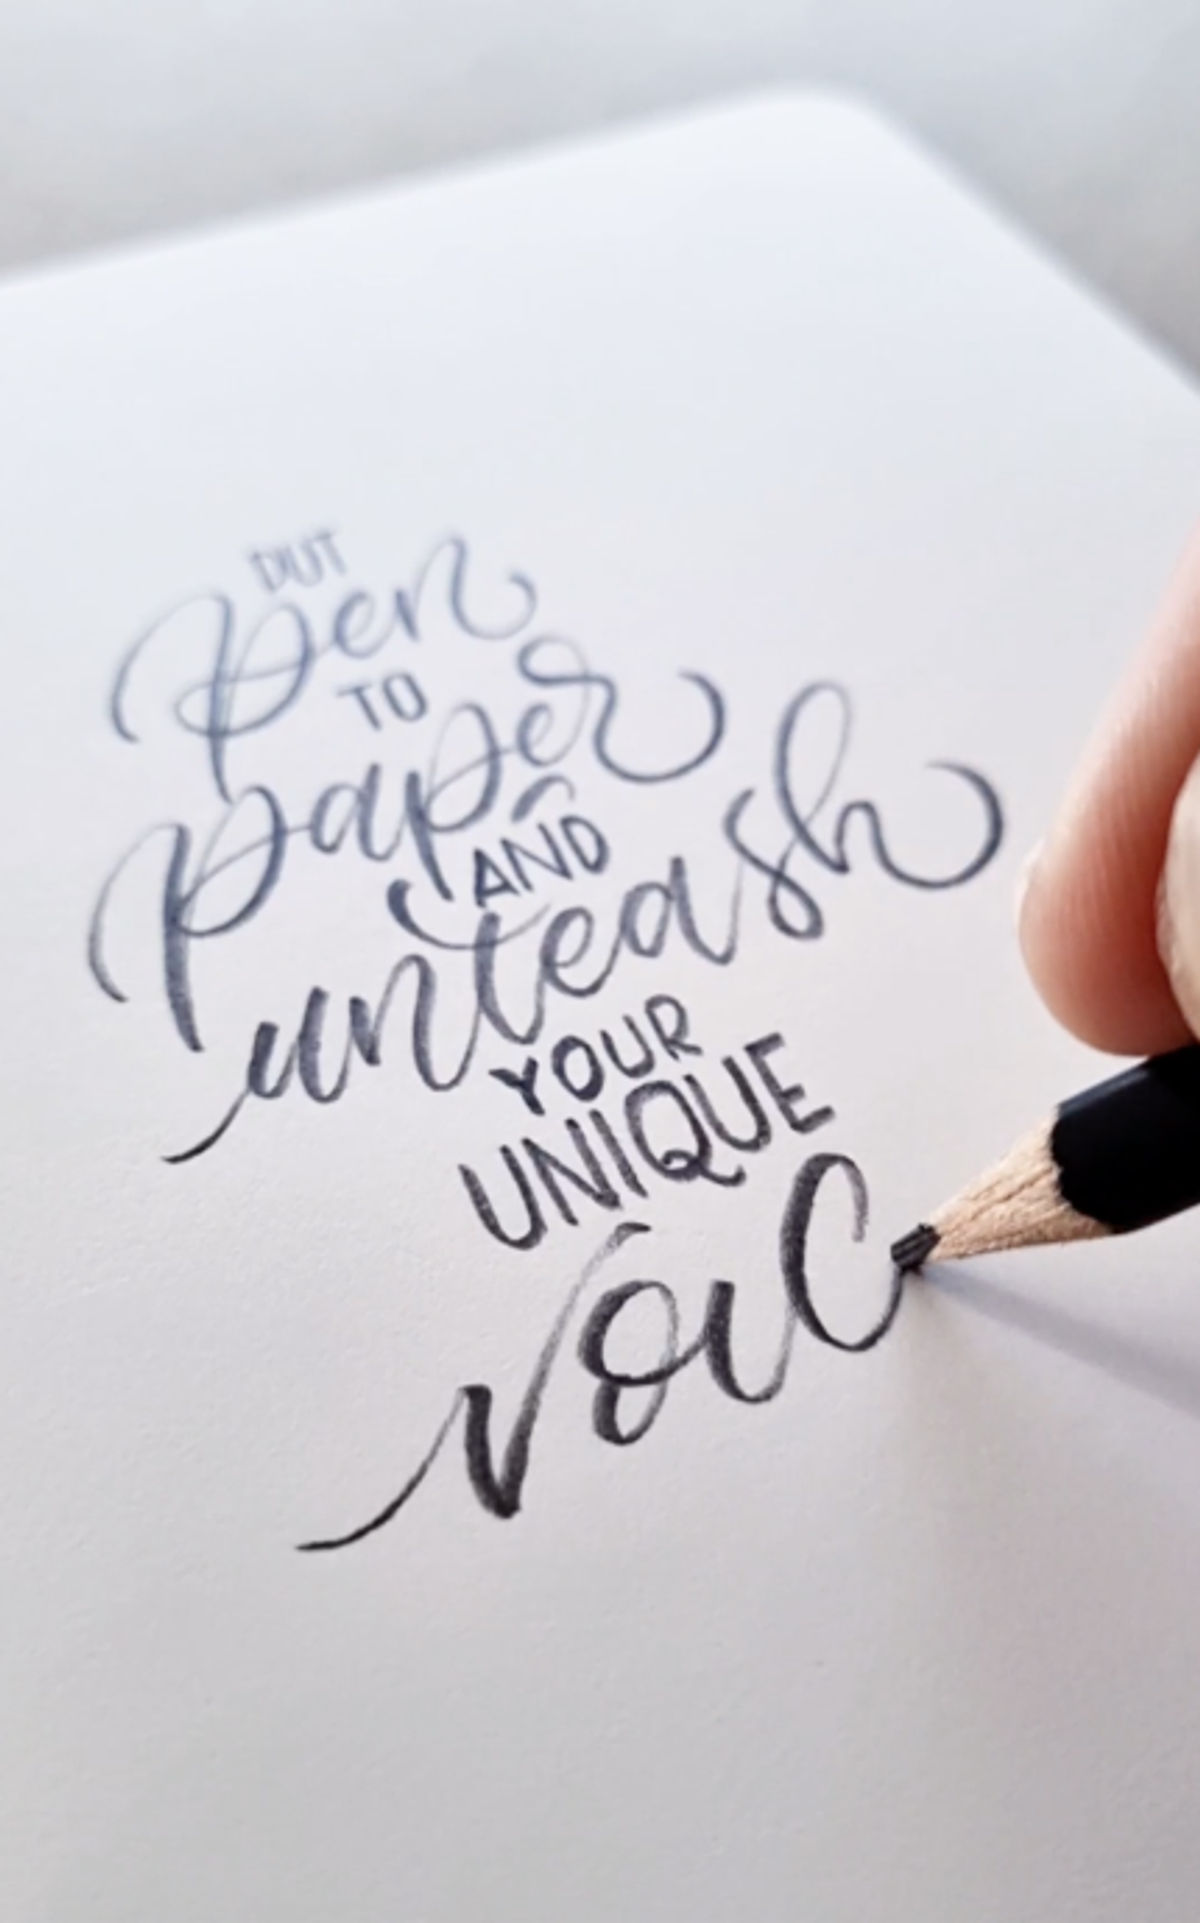 PUT
pen
TO
paper
AND
unleash
YOUR
UNIQUE
voic